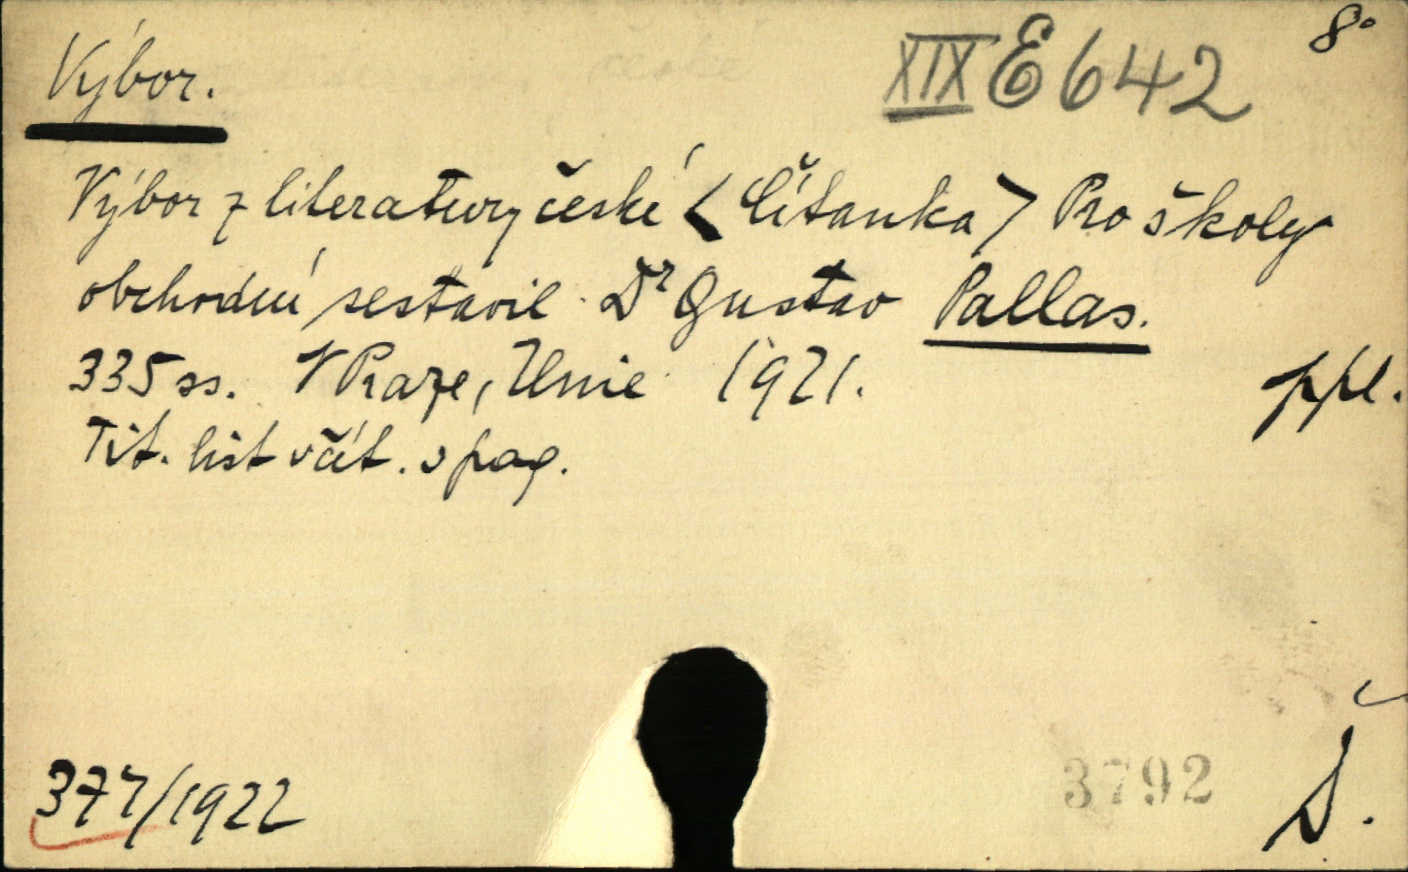 8°
Výbor. XIX E 642
Výbor z literatury české < Čítanka > Pro školy
obchodní sestavil Dr Gustav Pallas.
335 ss. V Praze, Unie 1921. ppl.
Tit. list včít. v pag.
377/1922 3792 Š.